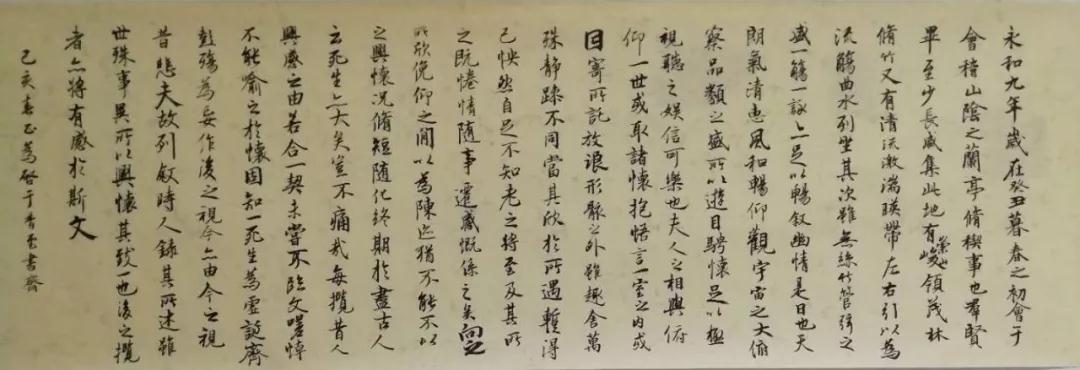 永和九年歲在癸丑暮春之初會于
會稽山陰之蘭亭脩稧事也羣賢
畢至少長咸集此地有崇山峻領茂林
脩竹又有清流激湍暎帶左右引以為
流觴曲水列坐其次雖無絲竹管弦之
盛一觴一詠亦足以暢敘幽情是日也天
朗氣清惠風和暢仰觀宇宙之大俯
察品類之盛所以遊目騁懷足以極
視聽之娛信可樂也夫人之相與俯
仰一世或取諸懷抱悟言一室之內或
因寄所託放浪形骸之外雖趣舍萬
殊靜躁不同當其欣於所遇暫得
己怏然自足不知老之將至及其所
之既惓情隨事遷感慨係之矣向之
所欣俛仰之閒以為陳迹猶不能不以
之興懷況脩短隨化終期於盡古人
云死生亦大矣豈不痛哉每攬昔人
興感之由若合一契未嘗不臨文嗟悼
不能喻之於懷固知一死生為虛誕齊
彭殤為妄作後之視今亦由今之視
昔悲夫故列敘時人錄其所述雖
世殊事異所以興懷其致一也後之攬
者亦將有感於斯文
己亥春正書齋